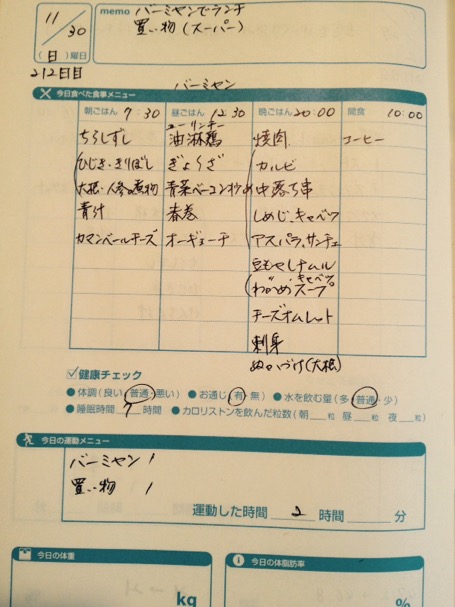 11/30
(日)曜日
212日目
memo バーミヤンでランチ
買い物(スーパー)
今日食べた食事メニュー
バーミヤン
朝ごはん 7:30
ちらしずし
ひじき・きりぼし
大根・人参の煮物
青汁
カマンベールチーズ
昼ごはん 12:30
ユーリンチー
油淋鶏
ぎょうざ
青菜ベーコン炒め
春巻
オーギョーチ
晩ごはん 20:00
焼肉
カルビ
中落ち串
しめじ、キャベツ
アスパラ、サンチェ
豆もやしナムル
(わかめ・キャベツスープ
チーズオムレット
刺身
ぬかづけ(大根)
間食 10:00
コーヒー
健康チェック
●体調(良い・普通・悪い) ●お通じ(有・無) ●水を飲む量(多・普通・少)
●睡眠時間 7 時間 ●カロリストンを飲んだ粒数(朝__粒 昼__粒 夜__粒)
今日の運動メニュー
バーミヤン 1
買い物 1
運動した時間 2 時間 分
今日の体重
kg
今日の体脂肪率
%